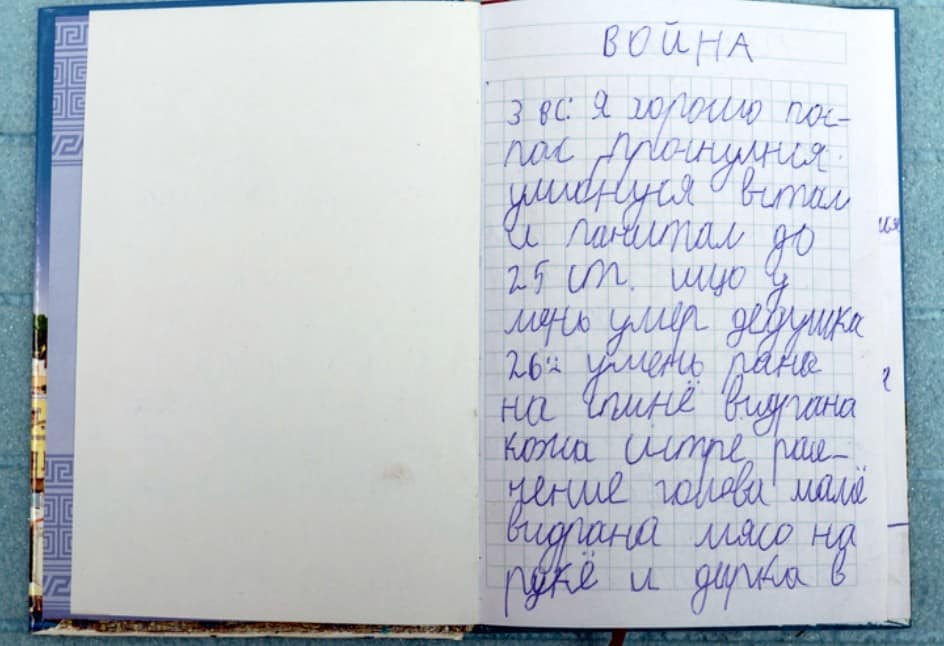 ВОЙНА
3 вс: Я хорошо пос-
пас Проснулися
умионуся встал
и пачитал до
25 ст. шцо у
мень умер дедушка
26: у мень рана
на спинё видрана
кожа систре ран-
чение голова мамё
видрана мясо на
рукё и дирка в